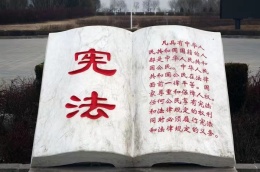 宪法
凡具有中华人
民共和国国籍的人
都是中华人民共和
国公民。中华人民
共和国公民在法律
面前一律平等。国
家尊重和保障人权。
任何公民享有宪法
和法律规定的权利，
同时必须履行宪法
和法律规定的义务。